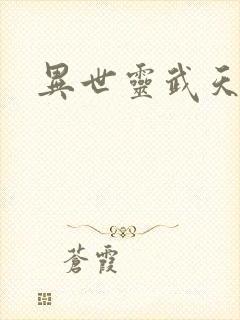 異世靈武天
蒼霞